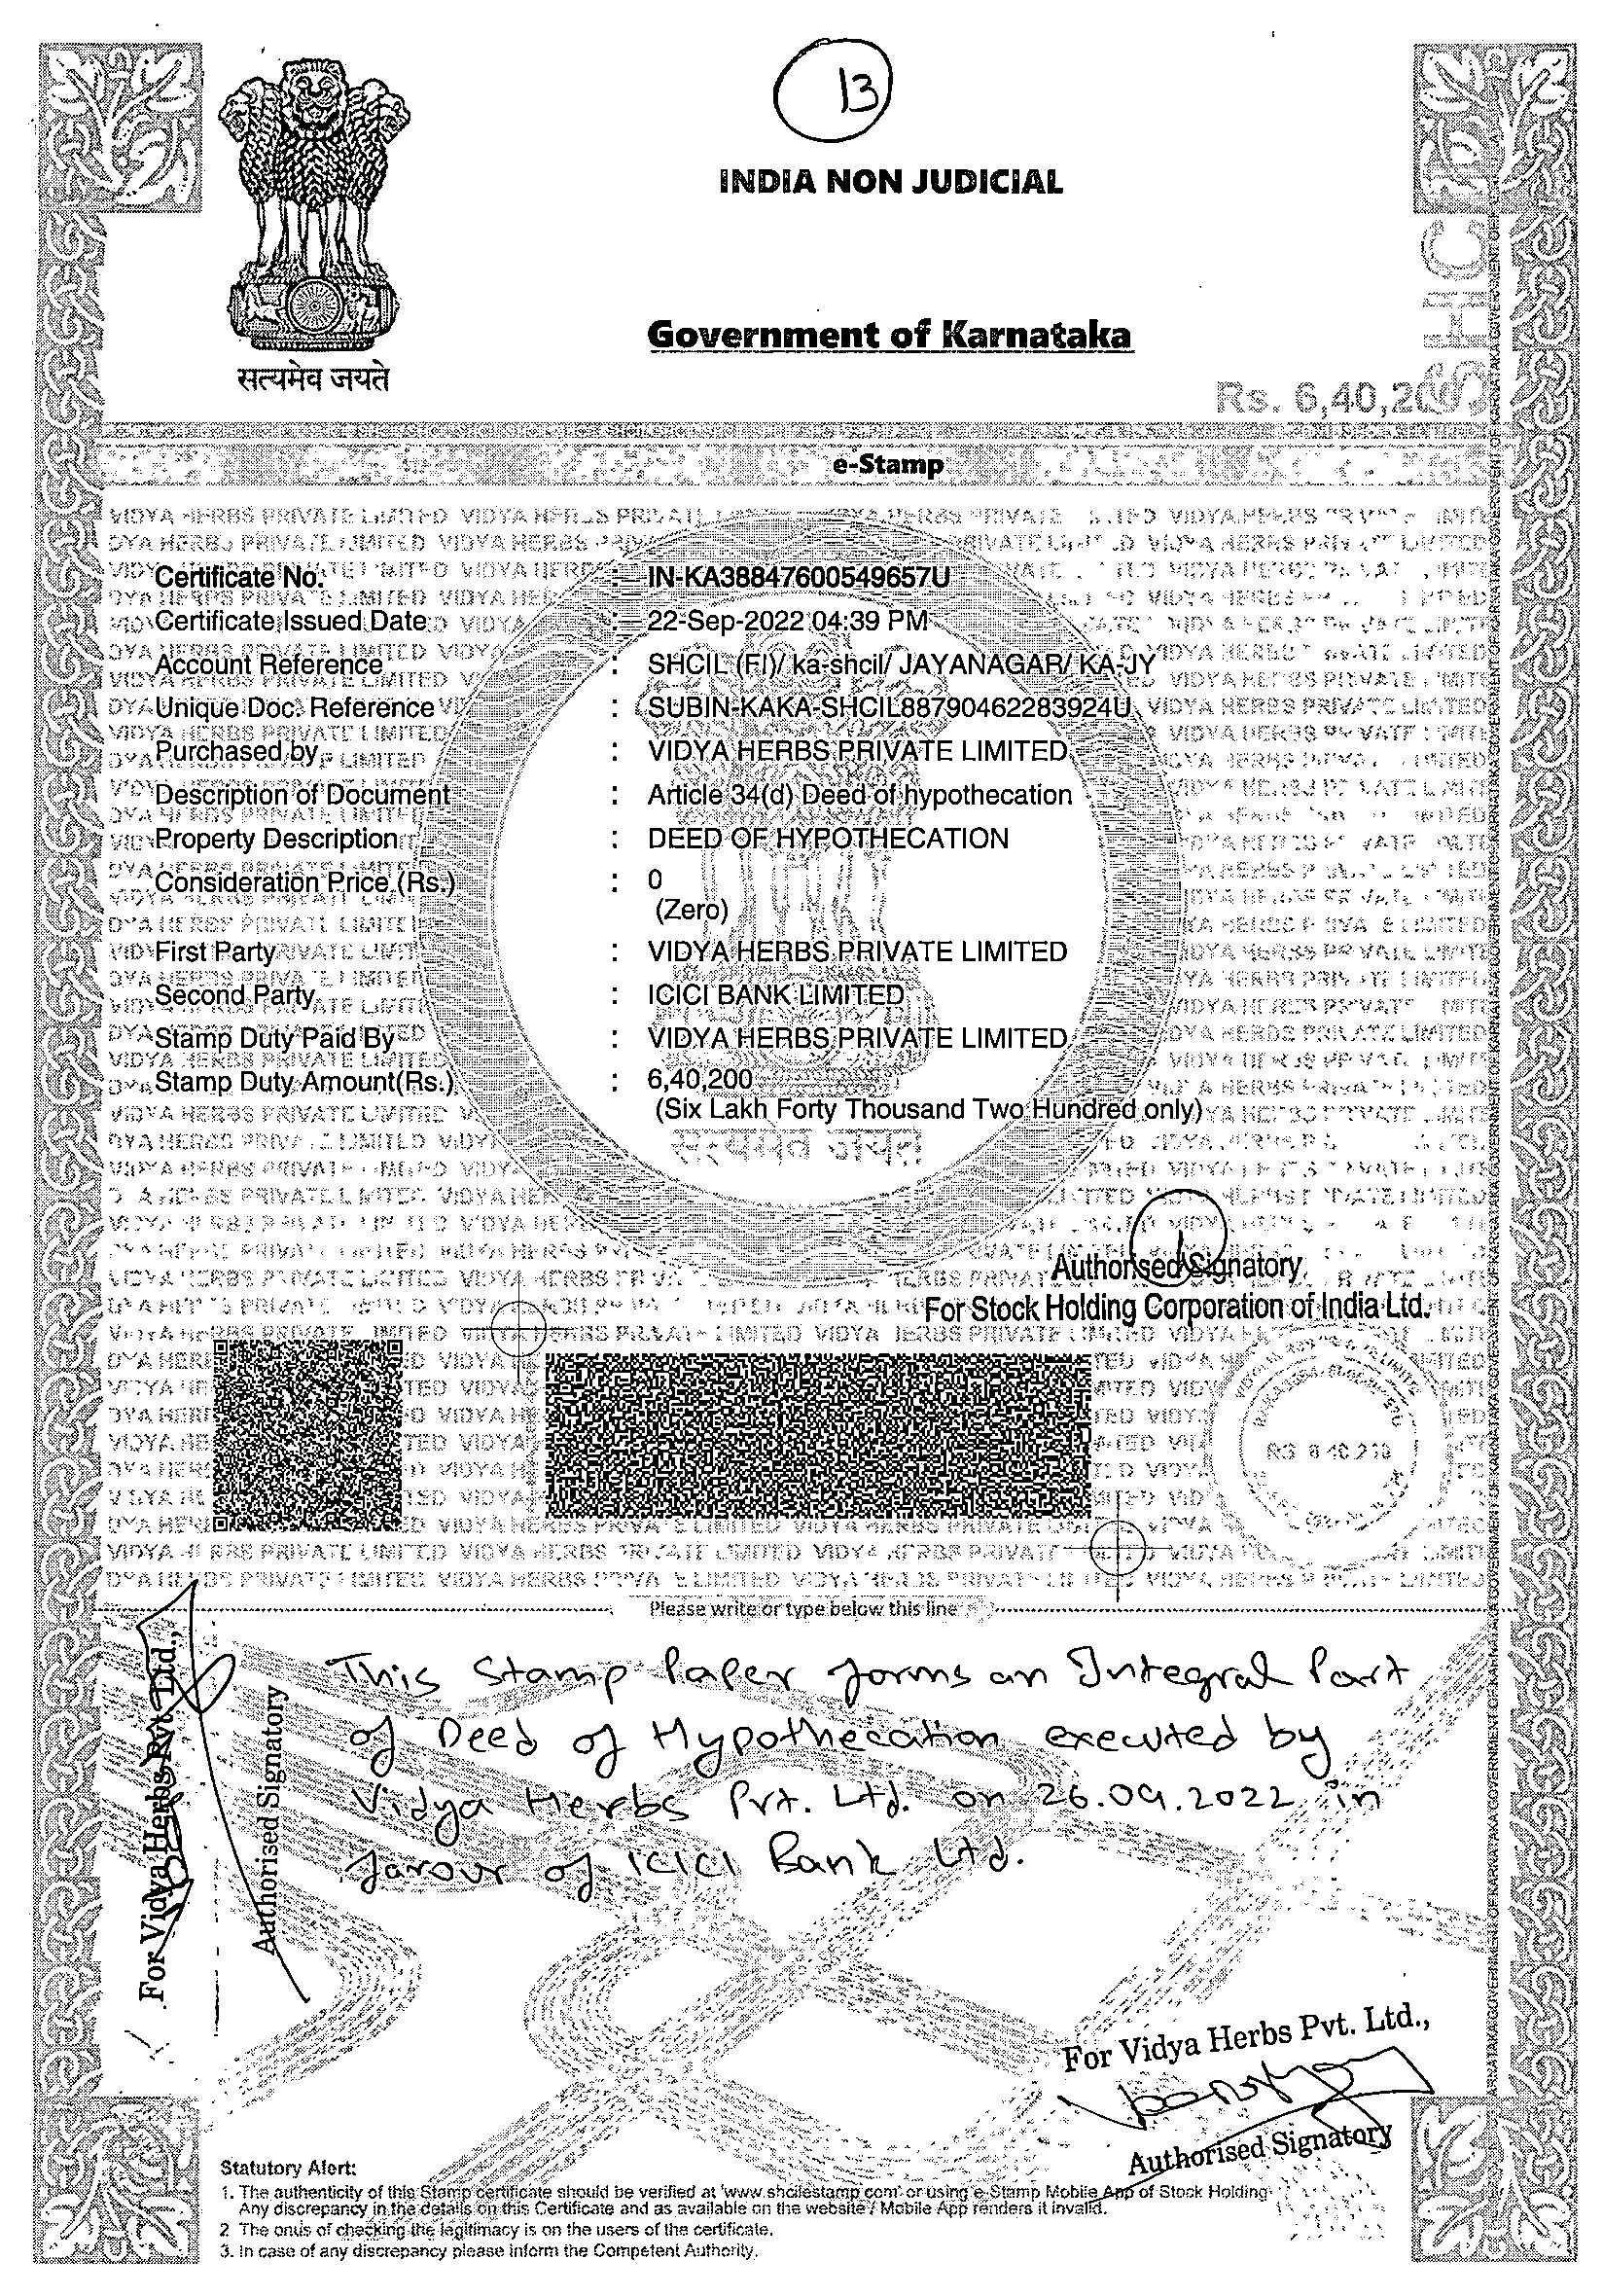 13
INDIA NON JUDICIAL
सत्यमेव जयते
Government of Karnataka
SHCIL
Rs. 6,40,200
e-Stamp
Certificate No. : IN-KA38847600549657U
Certificate Issued Date : 22-Sep-2022 04:39 PM
Account Reference : SHCIL (FI)/ ka-shcil/ JAYANAGAR/ KA-JY
Unique Doc. Reference : SUBIN-KAKA-SHCIL88790462283924U
Purchased by : VIDYA HERBS PRIVATE LIMITED
Description of Document : Article 34(d) Deed of hypothecation
Property Description : DEED OF HYPOTHECATION
Consideration Price (Rs.) : 0
(Zero)
First Party : VIDYA HERBS PRIVATE LIMITED
Second Party : ICICI BANK LIMITED
Stamp Duty Paid By : VIDYA HERBS PRIVATE LIMITED
Stamp Duty Amount(Rs.) : 6,40,200
(Six Lakh Forty Thousand Two Hundred only)
सत्यमेव जयते
Authorised Signatory
For Stock Holding Corporation of India Ltd.
Please write or type below this line
This Stamp Paper forms an Integral Part
of Deed of Hypothecation executed by
Vidya Herbs Pvt. Ltd. on 26.09.2022 in
favour of ICICI Bank Ltd.
For Vidya Herbs Pvt. Ltd.,
Authorised Signatory
For Vidya Herbs Pvt. Ltd.,
Authorised Signatory
Statutory Alert:
1. The authenticity of this Stamp certificate should be verified at 'www.shcilestamp.com' or using e-Stamp Mobile App of Stock Holding.
Any discrepancy in the details on this Certificate and as available on the website / Mobile App renders it invalid.
2. The onus of checking the legitimacy is on the users of the certificate.
3. In case of any discrepancy please inform the Competent Authority.